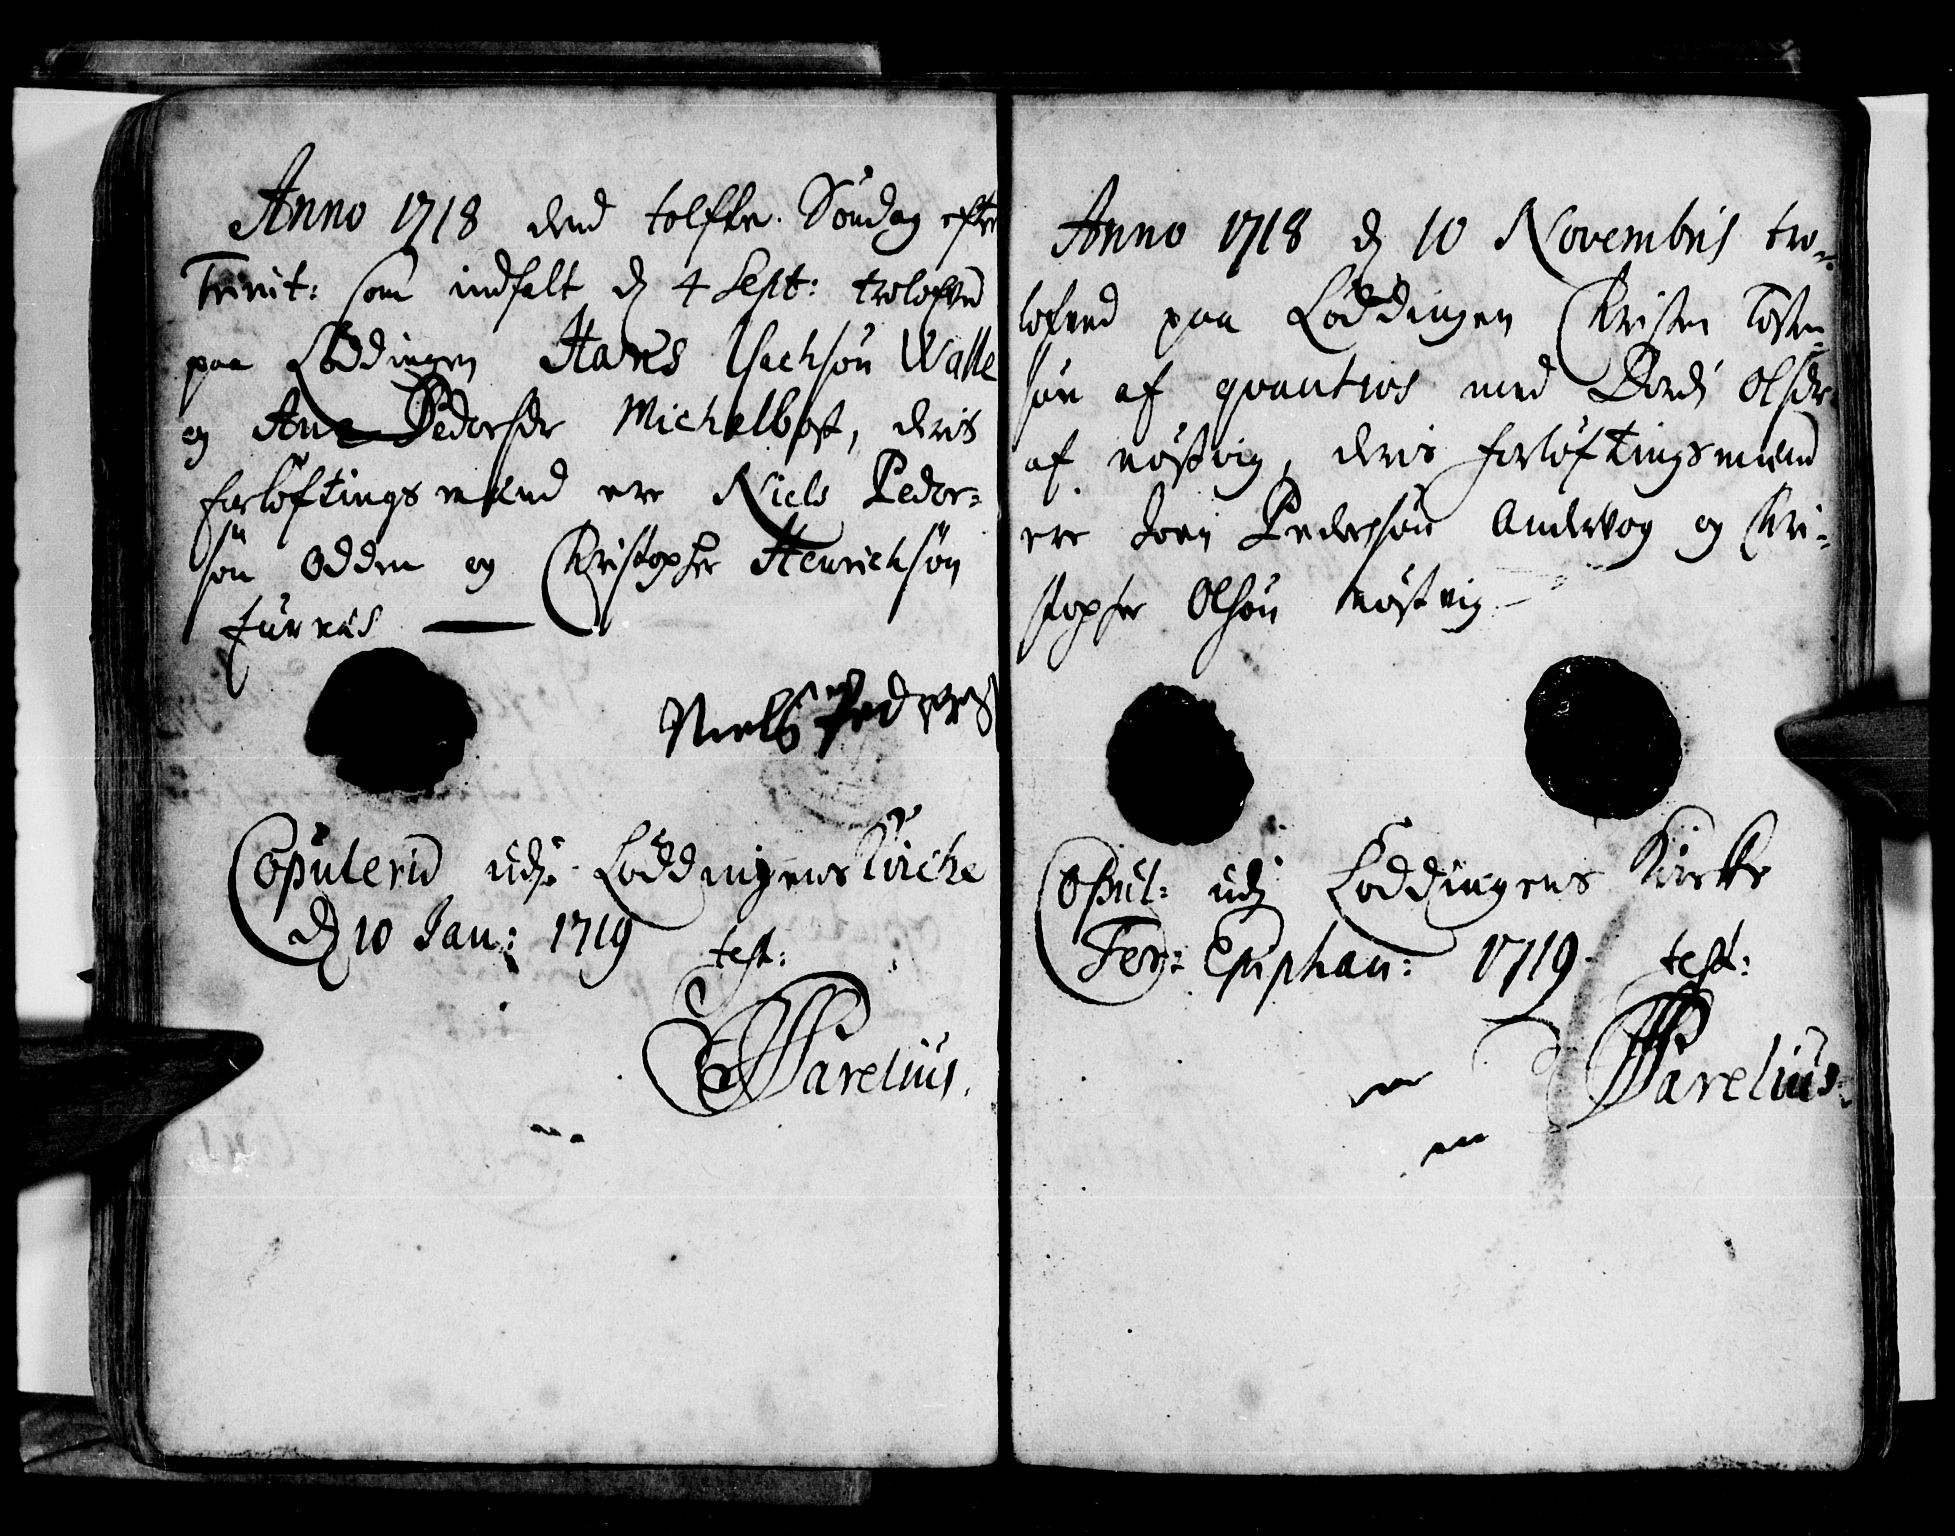 Anno 1718 dend tolffte Søndag efter
Trinit: som indfalt d 4 Sept: troloffved
paa Løddingen Hans Isachsøn Walle
og Ane Pedersdr Michelbost, deris
forløftings mænd ere Niels Peder=
søn Odden og Christopher Henrichsøn
furnæs
Niels Peders
Copulerid udj Løddingens Kirche
d 10 Jan: 1719
test:
Parelius.
Anno 1718 d 10 Novembris tro=
lofved paa Løddingen Christen Tosten
søn af qvantnos med Dordi Olsdr
af røstvig, deris forløftingsmænd
ere Joen Pedersøn Andvog og Chri=
stopher Olsøn røstvig
Copul: udj Løddingens Kirkke
Fer: Epiphan: 1719. test:
Parelius.